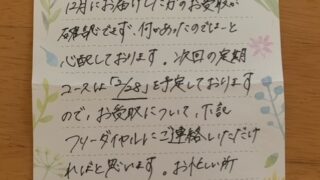 12月にお届けした分のお受取が
確認できず、何かあったのでは…と
心配しております。次回の定期
コースは「2/28」を予定しております
ので、お受取について、下記
フリーダイヤルにご連絡いただけ
ればと思います。お忙しい所